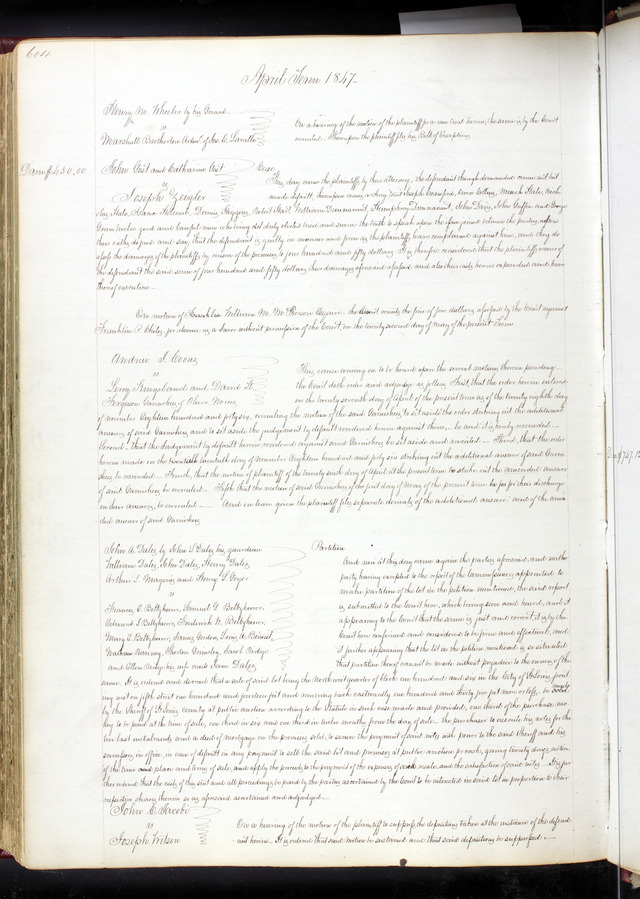 604
April Term 1847
Henry M. Wheeler by his Guard.
vs
Marshall Brotherton Admr. of
On a hearing of the motion of the plaintiff for a new trial herein, the same is by the Court
overruled. Thereupon the plaintiff files his Bill of Exceptions
Dam $450,00
John Gist and Catharine Gist
Case
vs
Joseph Zeigler
This day came the plaintiffs by their attorney, the defendant though demanded came not but
made default, thereupon comes a Jury
lin twelve good and lawful men who being duly elected tried and sworn the truth to speak upon the
their oaths do find and say, that the defendant is guilty in manner and form as the plaintiffs have complained against him, and they do
assess the damages of the plaintiffs by reason of the premises to four hundred and fifty dollars. It is therefore considered that the plaintiffs recover of
the defendant the said sum of four hundred and fifty dollars their damages aforesaid assessed and also their costs herein expended and have
thereof execution
On motion of Franklin William M. McPherson Esquire the Court remits the fine of five dollars assessed by the Court against
Franklin P. for absence as a Juror without permission of the Court, on the twenty second day of May of the present Term
Andrew J. Coons
vs
Levy and David H.
Ferguson Garnishees of Oliver Norris
This cause coming on to be heard upon the several motions therein pending
the Court doth order and adjudge as follows First, that the order herein entered
on the twenty seventh day of April of the present term as of the twenty eighth day
of November Eighteen hundred and forty six, overruling the motion of the said Garnishees to set aside the order striking out the additional
answer of said Garnishees and to set aside the judgement by default rendered herein against them, be and it is hereby rescinded
Second, that the Judgement by default herein rendered against said Garnishees be set aside and vacated. Third, that the order
herein made on the twentieth day of November Eighteen hundred and forty six striking out the additional answer of said Garni-
shees be rescinded. Fourth, that the motion of plaintiff of the twenty sixth day of April of the present term to strike out the amended answer
of said Garnishees be overruled. Fifth that the motion of said Garnishees of the first day of May of the present term for their discharge
on their answer, be overruled. And on leave given the plaintiff files separate denials of the additional answer and of the amen-
ded answer of said Garnishees
John A. Dales by John S. Dales his guardian
William Dales, John Dales, Henry Dales,
Arthur L. Magenis and Henry S. Geyer
vs
Frances E. Bettzhoover, Samuel G. Bettzhoover,
Edward S. Bettzhoover, Frederick W. Bettzhoover,
Mary E. Bettzhoover, James Gordon, Louis A. Benoist,
William Theodore Sarah Bridge
and Ellen Bridge his wife and Tom Dales,
Partition
And now at this day come again the parties aforesaid, and neither
party having excepted to the report of the Commissioners appointed to
make partition of the lot in the petition mentioned, the said report
is submitted to the Court here, which being seen and heard, and it
appearing to the Court that the same is just and correct, it is by the
Court here confirmed and considered to be firm and effectual, and
it further appearing that the lot in the petition mentioned is so situated
that partition thereof cannot be made without prejudice to the owners of the
same. It is ordered and decreed that a sale of said lot being the North west quarter of block one hundred and six in the City of St Louis, front
ing on fifth street one hundred and fourteen feet and running back eastwardly one hundred and thirty five feet more or less, be made
by the Sheriff of St Louis County at public auction according to the Statute in such case made and provided, one third of the purchase mo-
ney to be paid at the time of sale, one third in six and one third in twelve months from the day of sale, the purchaser to execute his notes for the
two last instalments and a deed of mortgage on the premises sold, to secure the payment of said notes with power to the said Sheriff and his
successors in office, in case of default in any payment to sell the said lot and premises at public auction giving twenty days notice
of the time and place and terms of sale, and apply the proceeds to the payment of the expenses of such sale, and the satisfaction of said notes. It is fur-
ther ordered that the costs of this suit and all proceedings be paid by the parties ascertained by the Court to be interested in said lot in proportion to their
respective shares therein so as aforesaid ascertained and adjudged.
John C.
vs
Joseph Wilson
On a hearing of the motion of the plaintiff to suppress the depositions taken at the instance of the defend-
ant herein. It is ordered that said motion be sustained and that said depositions be suppressed.